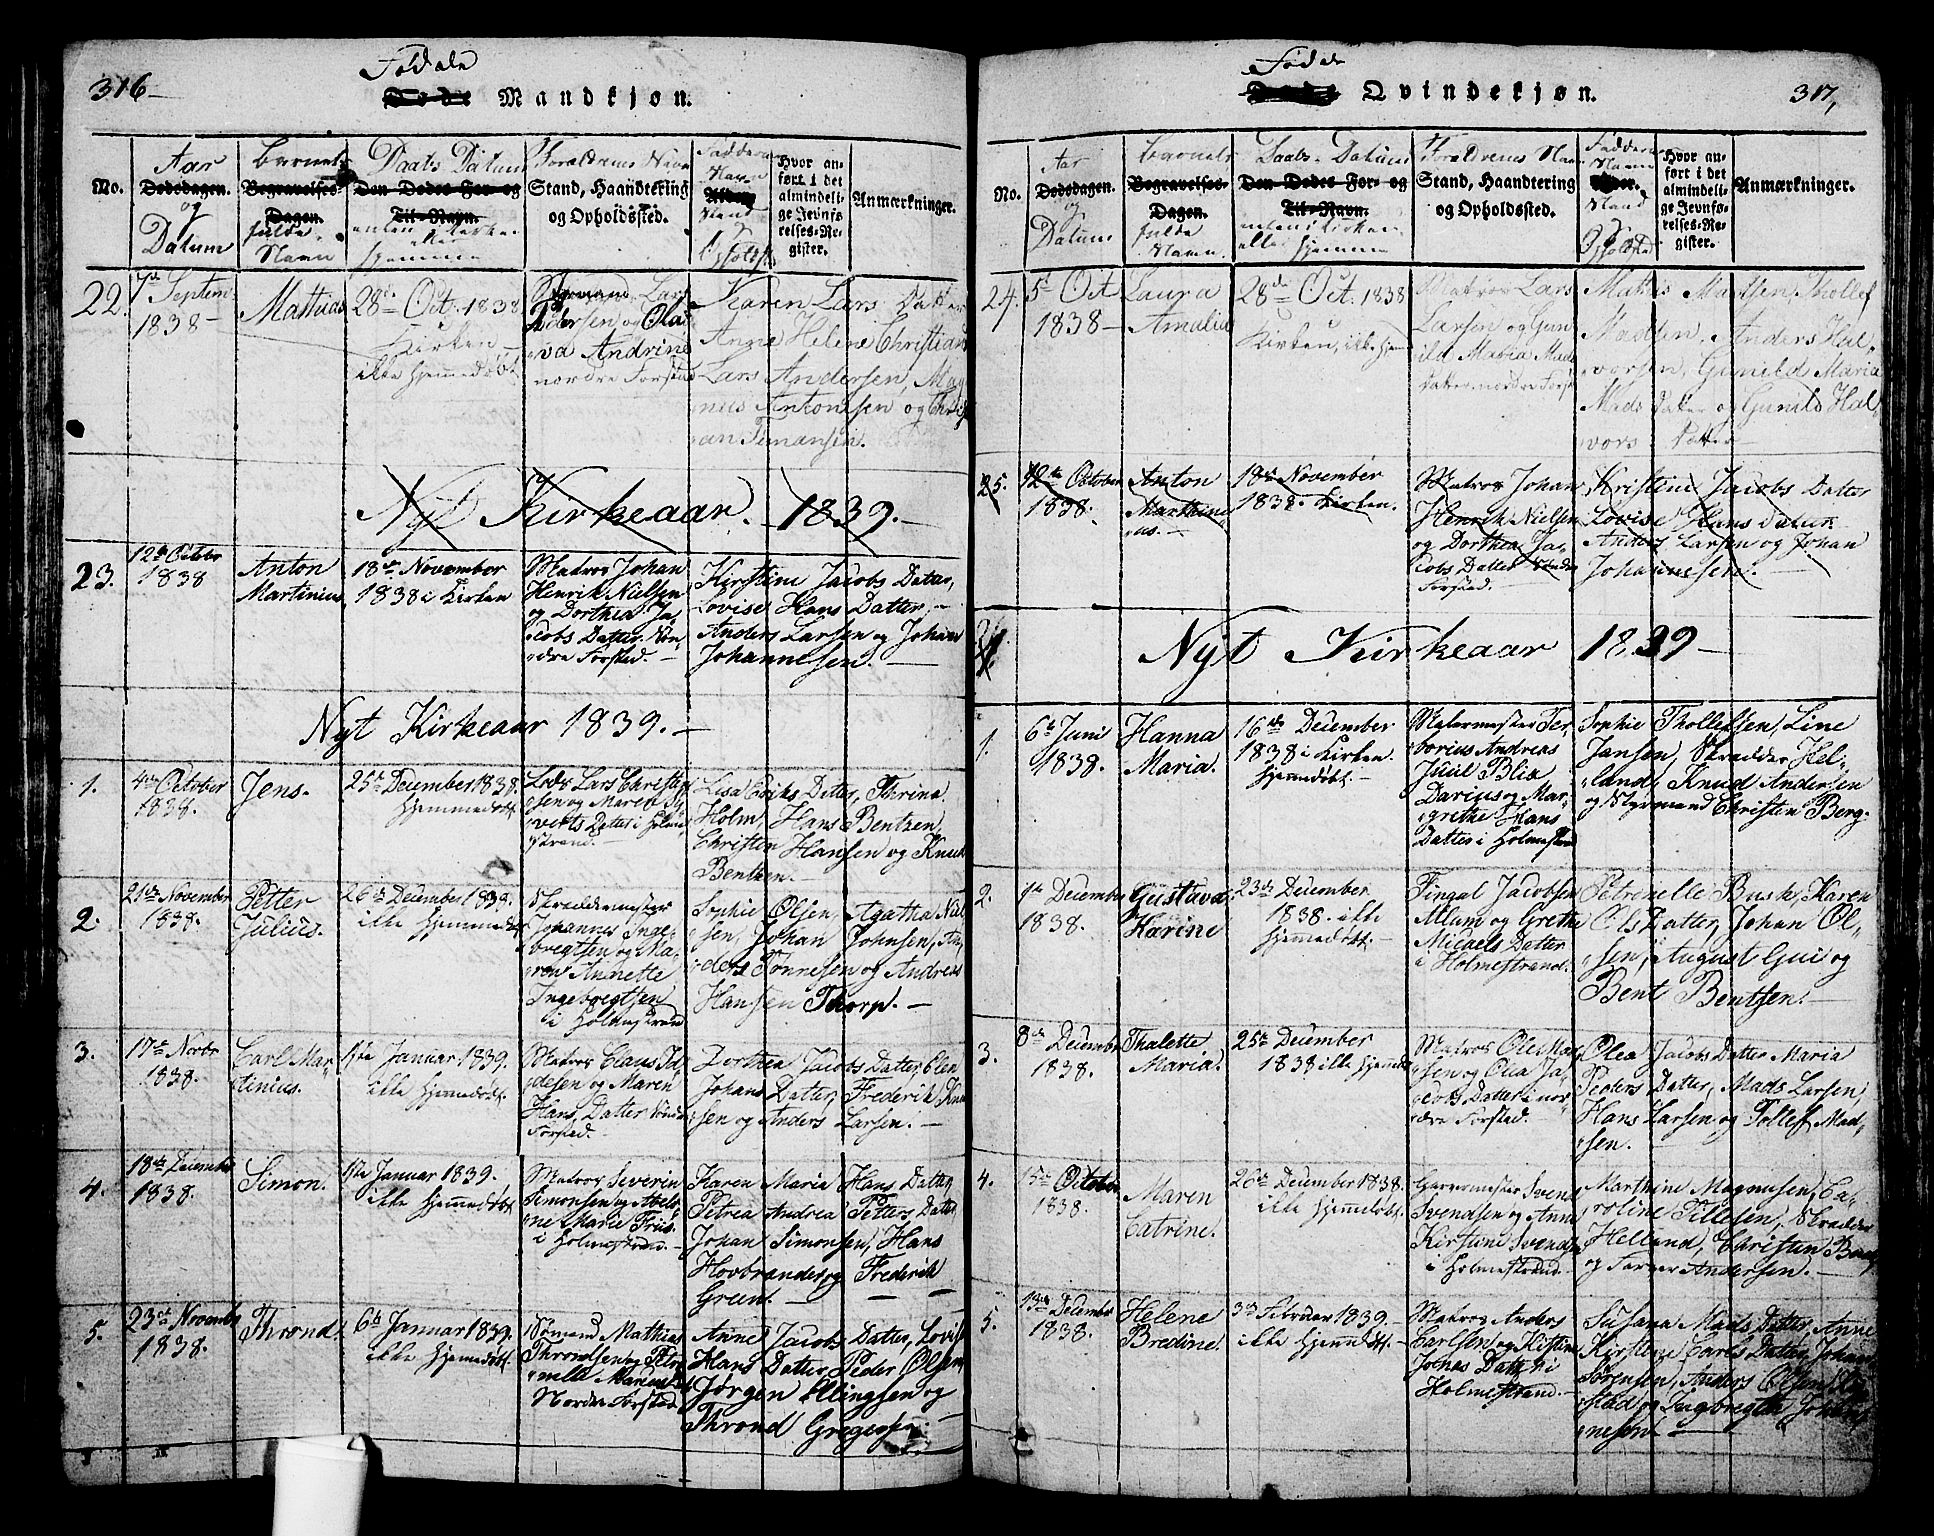 316
Fødde
Døde Mandkjøn.
No.
Aar
Dødsdagen.
og
Datum
Barnets
Begravelses-
Dagen.
fulde
Navn
Daabs Datum
Den Dødes For- og
Til-Navn.
enten i Kirken
eller
hjemme
Forældrenes Navn
Stand, Haandtering
og Opholdssted.
Faddernes
Navn
Alder
Stand
Opholdst
Hvor an-
ført i det
almindeli-
ge Jevnfø-
relses-Re-
gister.
Anmærkninger.
22.
7de Septem-
1838
Mathias
28de Oct. 1838
Kirken
ikke hjemmedøbt
Lars
Pedersen og Ola-
va Andrine
nordre Forstad
Karen Lars Datter
Anne Helene Christians
Lars Andersen, Mag-
nus Antonsen, og Chris-
ian Simansen.
Nyt Kirkeaar. 1839.
23.
12te Octobr
1838
Anton
Martinius
18de November
1838 i Kirken
Matros Johan
Henrik Nielsen
og Dorthea Ja-
cobs Datter. Søn-
dre Forstad.
Kirstine Jacobs Datter,
Lovise Hans Datter,
Anders Larsen og Johan
Johannesen.
Nyt Kirkeaar 1839.
1.
4de October
1838.
Jens.
25de December 1838.
hjemmedøbt.
Lods Lars Christop
sen og Maren Sy-
verts Datter i Holme-
strand.
Lisa Eriks Datter, Thrina
Holm, Hans Bentzen,
Christen Hansen og Knud
Bentzen.
2.
21de November
1838.
Petter
Julius.
26de December 1839.
ikke hjemmedøbt
Skræddermester
Johannes Inge-
bregtsen og Ma-
ren Annette
Ingebregtsen
i Holmestrand
Sophie Olsen, Agatha Niel-
sen, Johan Johnsen, An-
ders Tønnesen og Andreas
Hansen Thorp.
3.
17de Novbr
1838.
Carl Mar-
tinius.
1ste Januar 1839.
ikke hjemmedøbt.
Matros Claus Id-
desen og Maren
Hans Datter Søndre
Forstad.
Dorthea Jacobs Datter, Elen
Johans Datter, Frederik Knu
sen og Anders Larsen.
4.
18de December
1838.
Simon.
1ste Januar 1839.
ikke hjemmedøbt
Matros Severin
Simonsen og Abel-
ne Marie Friis
i Holmestrand.
Karen Maria Hans Datter
Petrea Andrea Petters Datter,
Johan Simonsen, Hans
Hovbrander og Frederik
Grunt.
5.
23de Novembr
1838.
Thrond.
6te Januar 1839.
ikke hjemmedøbt.
Sømand Mathias
Throndsen og Petro-
nille
Nordre Forstad.
Anne Jacobs Datter, Lovise
Hans Datter, Peder Olsen,
Jørgen Ellingsen og
Thrond Gregersen.
317,
Fødde
Døde Qvindekjøn.
No.
Aar
Dødsdagen.
og
Datum
Barnets
Begravelses-
Dagen.
fulde
Navn.
Daabs-Datum
Den Dødes For- og
Til-Navn.
enten i Kirken
eller hjemme
Forældrenes Navn
Stand, Haandtering
og Opholdssted.
Faddernes
Navn
Alder.
Stand
Opholdsted
Hvor an-
ført i det
almindeli-
ge Jevnfø-
relses-Re-
gister.
Anmærkninger.
24.
5te Oct
1838
Laura
Amalia
28de Oct. 1838
Kirken, ikke hjem
Matros Lars
Larsen og Gun-
ild Maria Mads
Datter. nordre Forst
Mathis Madsen, Thollef
Madsen, Anders Hal-
vorsen, Gunild Maria
Mads Datter og Gunild Hal-
vors Datter
25.
12te October
1838.
Anton
Marthini-
us.
18de November
1838. Kirken.
Matros Johan
Henrik Nielsen
og Dorthea Ja-
cobs Datter Søndre
Forstad.
Kirstine Jacobs Datter
Lovise Hans Datter
Anders Larsen og Johan
Johannesen.
Nyt Kirkeaar 1839
1.
6te Juni
1838.
Hanna
Maria.
16de December
1838 i Kirken.
hjemmedøbt.
Malermester Ter-
borius Andreas
Juul Blix
Darius og Mar-
grethe Hans
Datter i Holmestrand
Sophie Thollefsen, Line
Jansen, Skrædder Hel-
land, Knud Andersen
og Styrmand Christen Berg.
2.
1ste December
1838.
Gustava
Karine
23de December
1838. ikke
hjemmedøbt.
Fingal Jacobsen
Mlum og Grethe
Micaels Datter
i Holmestrand.
Petronelle Busk, Karen
Ols Datter, Johan Ol-
sen, August Gui og
Bent Bentsen.
3.
8de December
1838.
Thalette
Maria.
25de December
1838 ikke hjemmed
Matros Ole Mad-
sen og Olea Ja-
cobs Datter i nor-
dre Forstad.
Olea Jacobs Datter Maria
Peders Datter, Mads Larsen,
Hans Larsen og Tollef Mad-
sen.
4.
15de October
1838.
Maren
Catrine.
26de December 1838.
ikke hjemmedøbt.
Garvermester Svend
Svendsen og Anne
Kirstine Svends
i Holmestrand
Marthine Magnusen, Ca-
roline Tillesen, Skrædder
Helland, Christen Baag
og Farver Andersen.
5.
13de December
1838.
Helene
Bredine.
3die Februar 1839.
ikke hjemmedøbt.
Matros Anders
Carlsen og Kirstine
Johns Datter i
Holmestrand.
Susana Mads Datter, Anne
Kirstine Carls Datter, Johan
Sørensen, Anders Olsen
stad og Ingbregth Johan-
nesen.